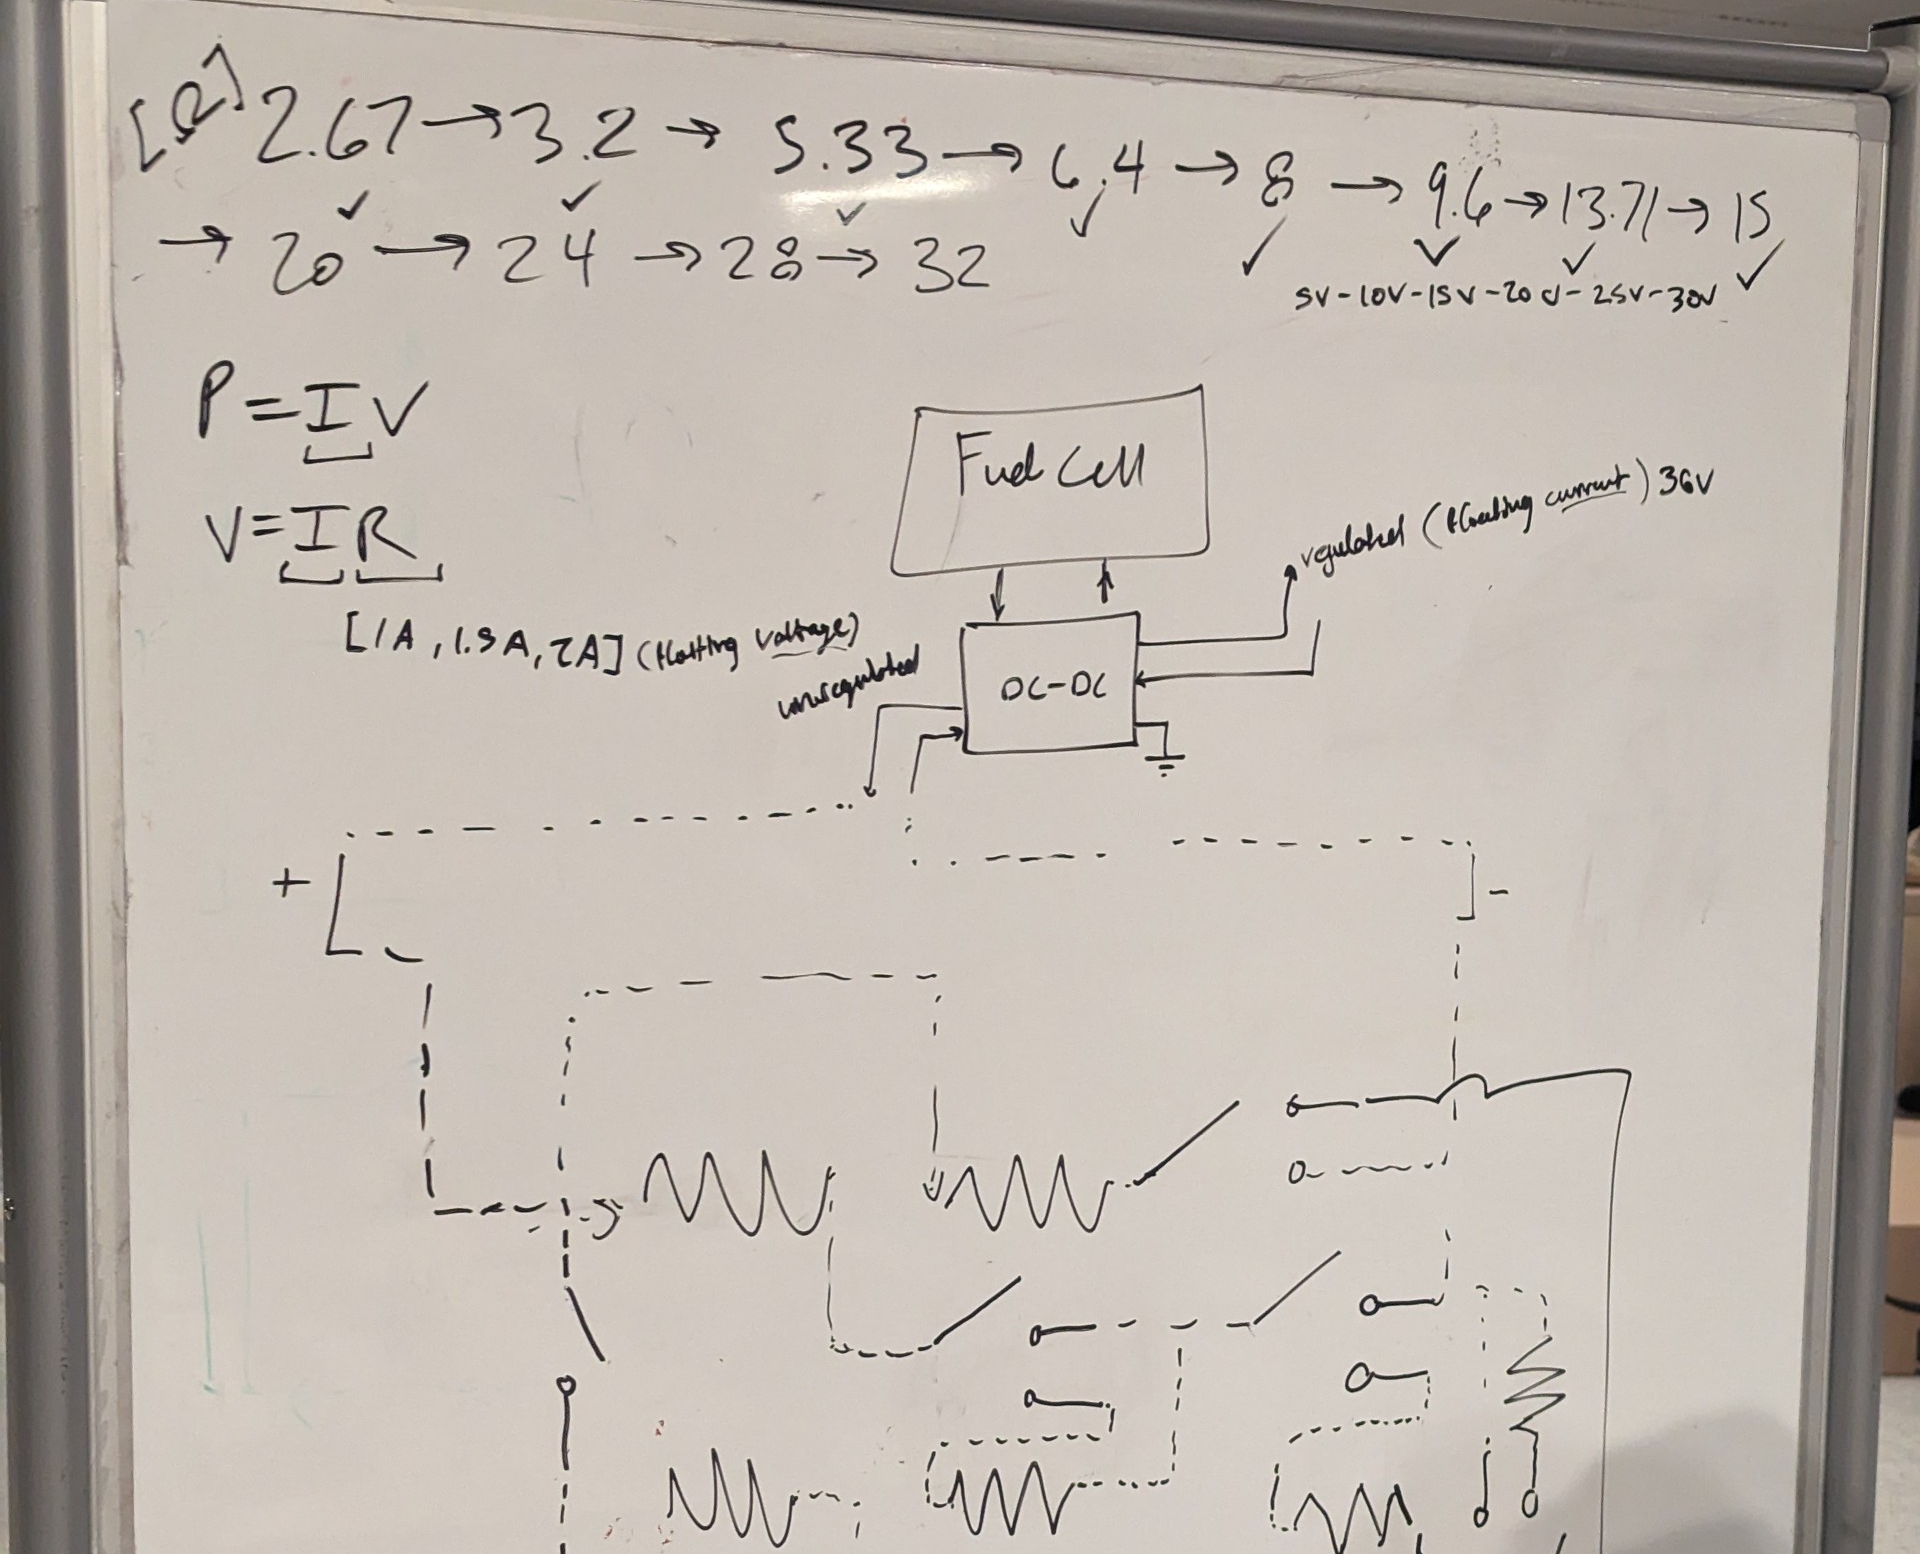 [Ω] 2.67 → 3.2 → 5.33 → 6.4 → 8 → 9.6 → 13.71 → 15
✓ ✓ ✓ ✓ ✓ ✓ ✓ ✓
→ 20 → 24 → 28 → 32
5V-10V-15V-20V-25V-30V
P = IV
V = IR
[1A, 1.5A, 2A] (floating voltage)
unregulated
Fuel Cell
regulated (floating current) 36V
DC-DC
+
-